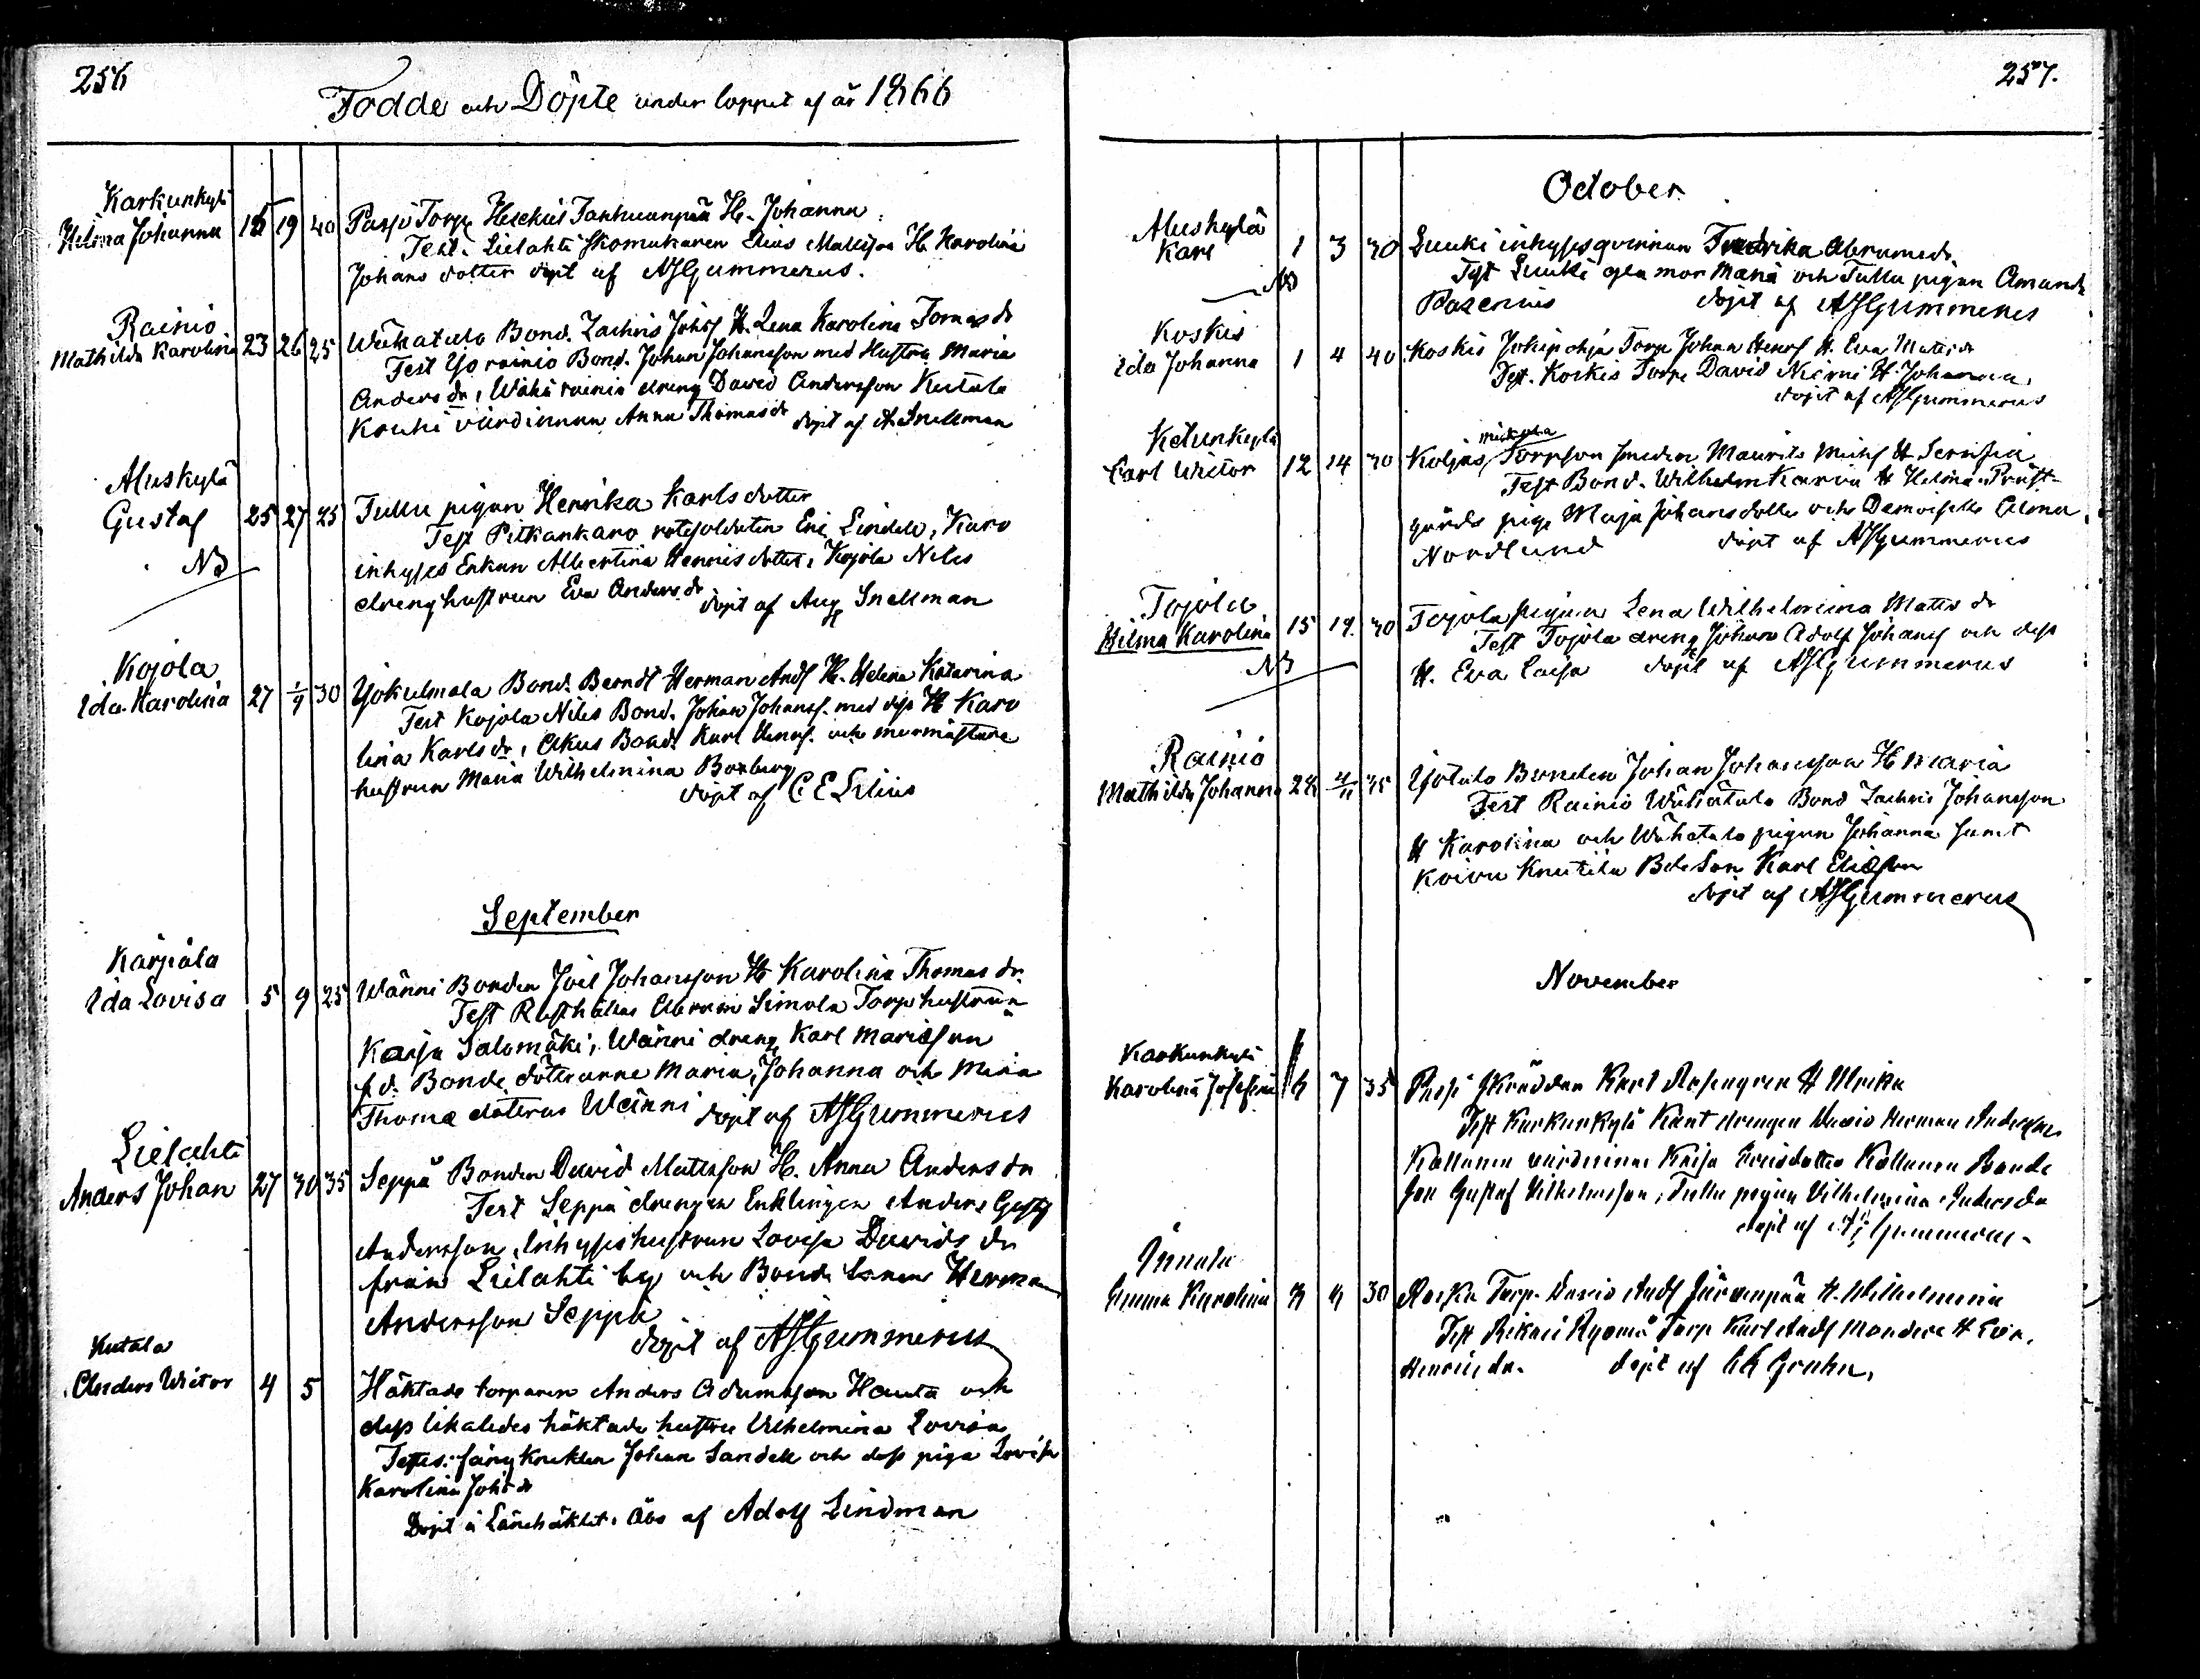 256
Födde och Döpte under loppet af år 1866
Karkunkylä
Hilma Johanna 16 19 40 Pasjo Torp. Heickus Tanhuanpää H. Johanna
Test. Lielahti skomakaren Elias Mattsson H. Karolina
Johans dotter döpt af AJGummerus.
Rainio
Mathilda Karolina 23 26 25 Wähatalo Bond. Zachris Johsf H. Lena Karolina Tomas dr
Test Yo rainio Bond. Johan Johansson med Hustru Maria
Anders dr, Wähä rainio dreng David Andersson Kutala
Kouhi värdinnan Anna Thomas dr döpt af A. Snellman
Aluskylä
Gustaf 25 27 25 Tullu pigan Henrika Karlsdotter
Test Pitkankaro rotesoldaten Eric Lindell, Karo
inhyses Enkan Albertina Henriks dotter, Kojola Niles
drenghustrun Eva Anders dr döpt af Aug Snellman
NB
Kojola
Ida Karolina 27 1/9 30 Yokulmala Bond. Berndt Herman Andf H. Helena Katarina
Test Kojola Niles Bond. Johan Johansf. med dess H Karo
lina Karls dr, Eikus Bond. Karl Henrf. och murmästare
hustrun Maria Wilhelmina Boxberg
döpt af C E Lilius
September
Karjala
Ida Lovisa 5 9 25 Wänni Bonden Joel Johansson H Karolina Thomas dr
Test Rusth Abram Simola Torp hustrun
Kaisa Salomäki, Wänni dreng Karl Mariasson
f.d. Bonde dötrarne Maria, Johanna och Mina
Thomæ döttrar Wänni döpt af AJGummerus
Lielahti
Anders Johan 27 30 35 Seppä Bonden David Mattsson H. Anna Anders dr
Test Seppä drengen Enklingen Anders Gustf
Andersson, Inhyses hustrun Lovisa Davids dr
från Lielahti by och Bonde sonen Herman
Andersson Seppä
döpt af AJGummerus
Kutala
Anders Wictor 4 5 Häktade torparen Anders Adamsson Hauta och
dess likaledes häktade hustru Vilhelmina Lovisa
Testes: fångknekten Johan Sandell och dess piga Lovisa
Karolina Johs dr
Döpt å Länehäktet i Åbo af Adolf Lindman
257.
October
Aluskylä
Karl 1 3 30 Luuki inhysesqvinnan Fredrika Abramsdr.
Test Luuki gla mor Maria och Tullu pigan Amanda
döpt af AJGummerus
NB
Koskis
Ida Johanna 1 4 40 Koskis Jokipohja Torp Johan Henrf H. Eva Matts dr
Test. Koskis Torp. David Niemi H. Johanna.
döpt af AJGummerus
Ketunkylä
Carl Wictor 12 14 30 Koljas Torpson smeden Maurits Michf H Serafia
Test Bond. Wilhelm Karvia H Helena. Präst-
gårds piga Maja Johansdotter och Demoiselle Alma
Nordlund döpt af AJGummerus
Tojola
Hilma Karolina 15 19. 30 Tojola pigan Lena Wilhelmina Matts dr
Test Tojola dreng Johan Adolf Johansf och dess
H. Eva Caisa döpt af AJGummerus
NB
Rainio
Mathilda Johanna 28 4/11 35 Yötalo Bonden Johan Johansson H Maria
Test Rainio Wähätalo Bond Zachris Johansson
H Karolina och Wähatalo pigan Johanna samt
Koivu Knuutila Bde Son Karl Eliasson
döpt af AJGummerus
November
Karkunkylä
Karolina Josefina 6 7 35 Pasji Skräddar Karl Rosengren H Ulrika
Test Karkunkylä Kant drengen David Herman Andersson
Källunen värdinnan Kaisa Ericsdotter Källunen Bonde
son Gustaf Vilhelmsson, Tullu pigan Vilhelmina Anders dr
döpt af AJGummerus.
Emma Karolina 30 Torp. David Andf Järvenpää H. Wilhelmina
Test Torp Karl Andf H Eva
Henrics dr. döpt af